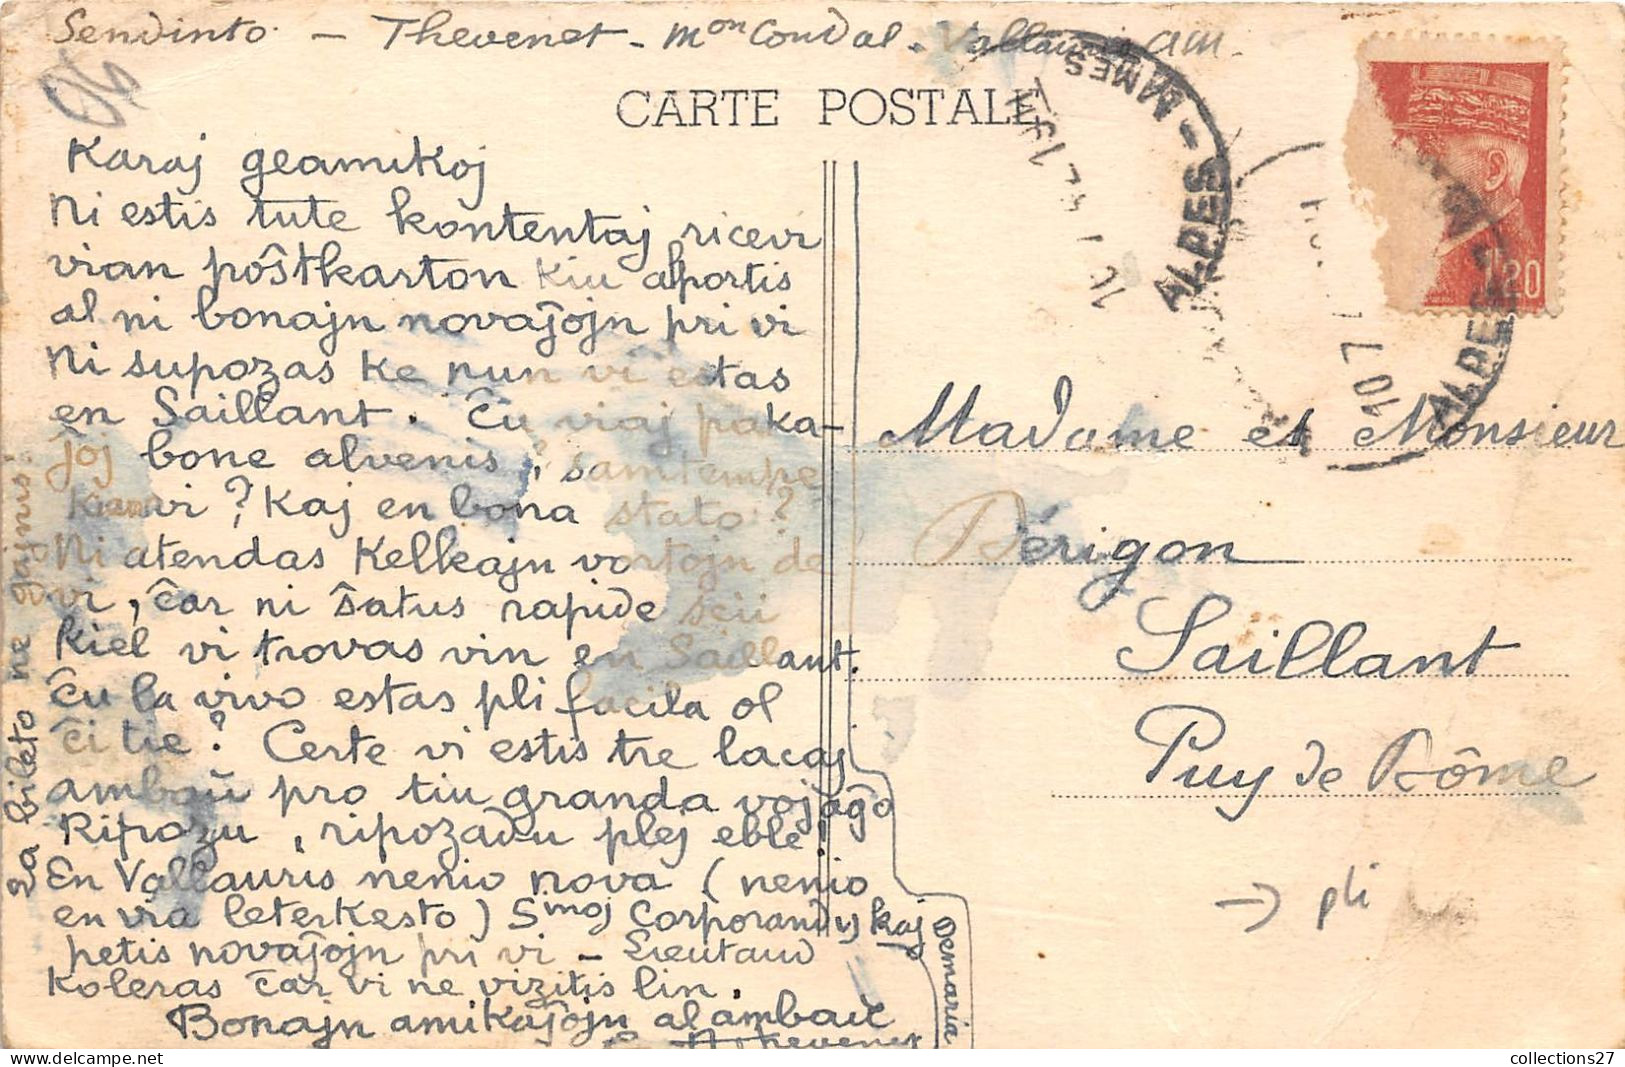 Sendinto - Thevenet - Mon Condal - Vallauris AM.
96
CARTE POSTALE
Karaj geamikoj
Ni estis tute kontentaj ricevi
vian poŝtkarton kiu alportis
al ni bonajn novaĵojn pri vi
Ni supozas ke nun vi estas
en Saillant. Ĉu viaj paka-
ĵoj bone alvenis, samtempe
kiam vi? Kaj en bona stato?
Ni atendas kelkajn vortojn de
vi, ĉar ni ŝatus rapide scii
kiel vi trovas vin en Saillant.
Ĉu la vivo estas pli facila ol
ĉi tie? Certe vi estis tre lacaj
ambaŭ pro tiu granda vojaĝo
Ripozu, ripozadu plej eble!
En Vallauris nenio nova (nenio
en via leterkesto) Smoj Corporandy kaj
Demaria
petis novaĵojn pri vi - Lieutaud
koleras ĉar vi ne vizitis lin.
Bonajn amikaĵojn al ambaŭ
Thevenet
La bileto ne gajnis!
ALPES - MMES
1F20
ALPES - M
Madame et Monsieur
Dérigon
Saillant
Puy de Dôme
→ pli
collections27